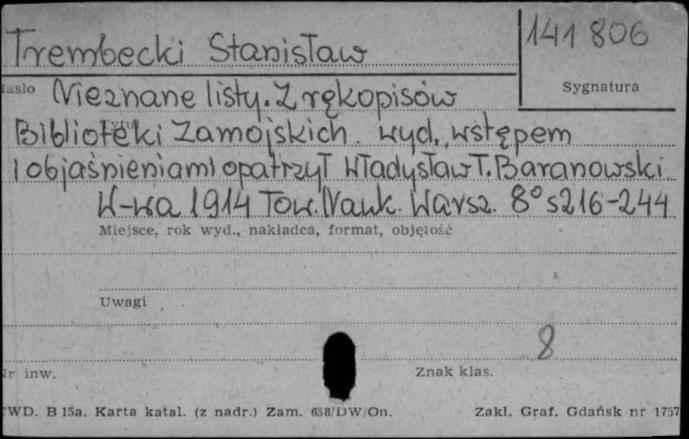 Trembecki Stanisław
141 806
Sygnatura
Hasło Nieznane listy. Z rękopisów
Tytuł
Bibljoteki Zamojskich. wyd., wstępem
i objaśnieniami opatrzył Władysław T. Baranowski
W-wa 1914 Tow. Nauk. Warsz. 8° s216-244
Miejsce, rok wyd., nakładca, format, objętość
Uwagi
8
Nr inw.
Znak klas.
CWD. B 15a. Karta katal. (z nadr.) Zam. 658/DW/On.
Zakł. Graf. Gdańsk nr 1757